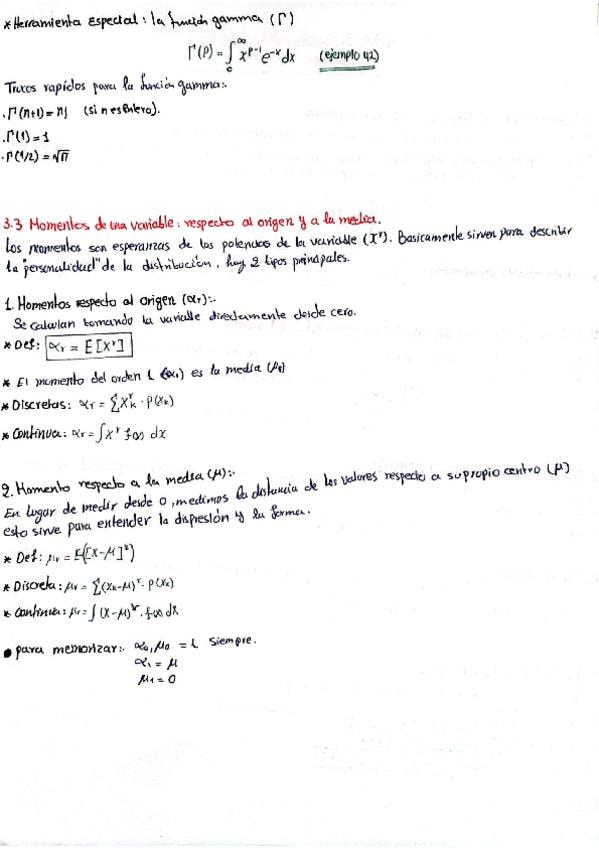 * Herramienta Especial: la función gamma (Γ)
Γ(p) = ∫₀^∞ x^(p-1) e^(-x) dx (ejemplo 42)
Trucos rapidos para la función gamma:.
. Γ(n+1) = n! (si n es entero).
. Γ(1) = 1
. Γ(1/2) = √π
3.3 Momentos de una variable: respecto al origen y a la media.
Los momentos son esperanzas de las potencias de la variable (X^r). Basicamente sirven para describir
la "personalidad" de la distribución, hay 2 tipos principales.
1. Momentos respecto al origen (αr):.
Se calculan tomando la variable directamente desde cero.
* Def: αr = E[X^r]
* El momento del orden 1 (α1) es la media (μ)
* Discretas: αr = Σ X_k^r · P(x_k)
* Continua: αr = ∫ x^r f(x) dx
2. Momento respecto a la media (μ):.
En lugar de medir desde 0, medimos la distancia de los valores respecto a su propio centro (μ)
esto sirve para entender la dispresión y la forma.
* Def: μr = E([X-μ]^2)
* Discreta: μr = Σ(x_k-μ)^r · P(x_k)
* Continua: μr = ∫(x-μ)^r · f(x) dx
● para memorizar:. α0, μ0 = 1 siempre.
α1 = μ
μ1 = 0